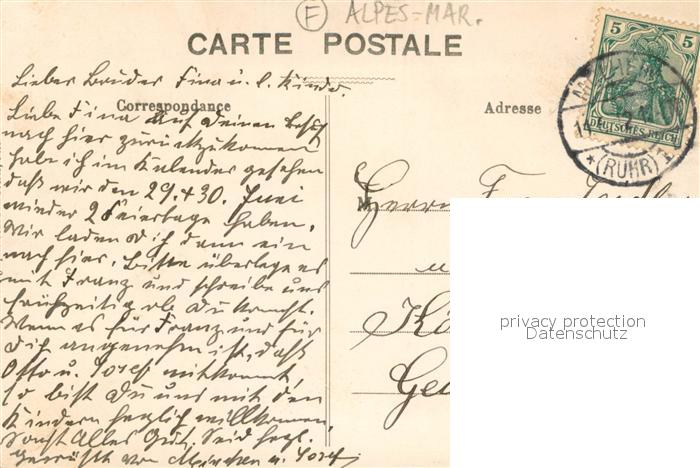 F ALPES-MAR.
CARTE POSTALE
Lieber Bruder Fina u. l. Kinder.
Correspondance
Adresse
Liebe Fina auf Deinen Besuch
nach hier zurückzukommen
habe ich im Kalender gesehen
daß wir den 29. + 30. Juni
wieder 2 Feiertage haben.
Wir laden Dich dann ein
nach hier. Bitte überlege es
mit Franz und schreibe uns
frühzeitig ob Du kommst.
Wenn es für Franz und für
Dich angenehm ist, daß
Otto u. Josef mitkommt,
so bist Du uns mit den
Kindern herzlich willkommen,
Sonst Alles Gut. Seid herzl.
gegrüßt von u. Josef
5 5
DEUTSCHES REICH
(RUHR)
M
Herrn
u
privacy protection
Datenschutz